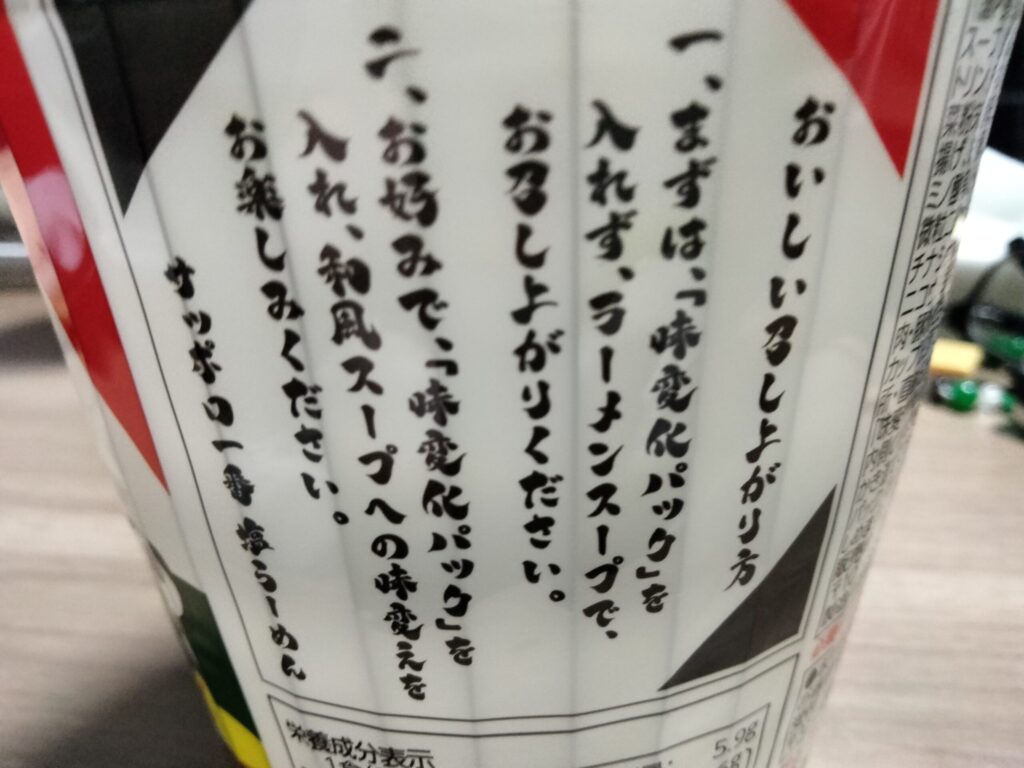 おいしい召し上がり方
一、まずは、「味変化パック」を
入れず、ラーメンスープで、
お召し上がりください。
二、お好みで、「味変化パック」を
入れ、和風スープへの味変えを
お楽しみください。
サッポロ一番 塩らーめん
栄養成分表示
5.9g